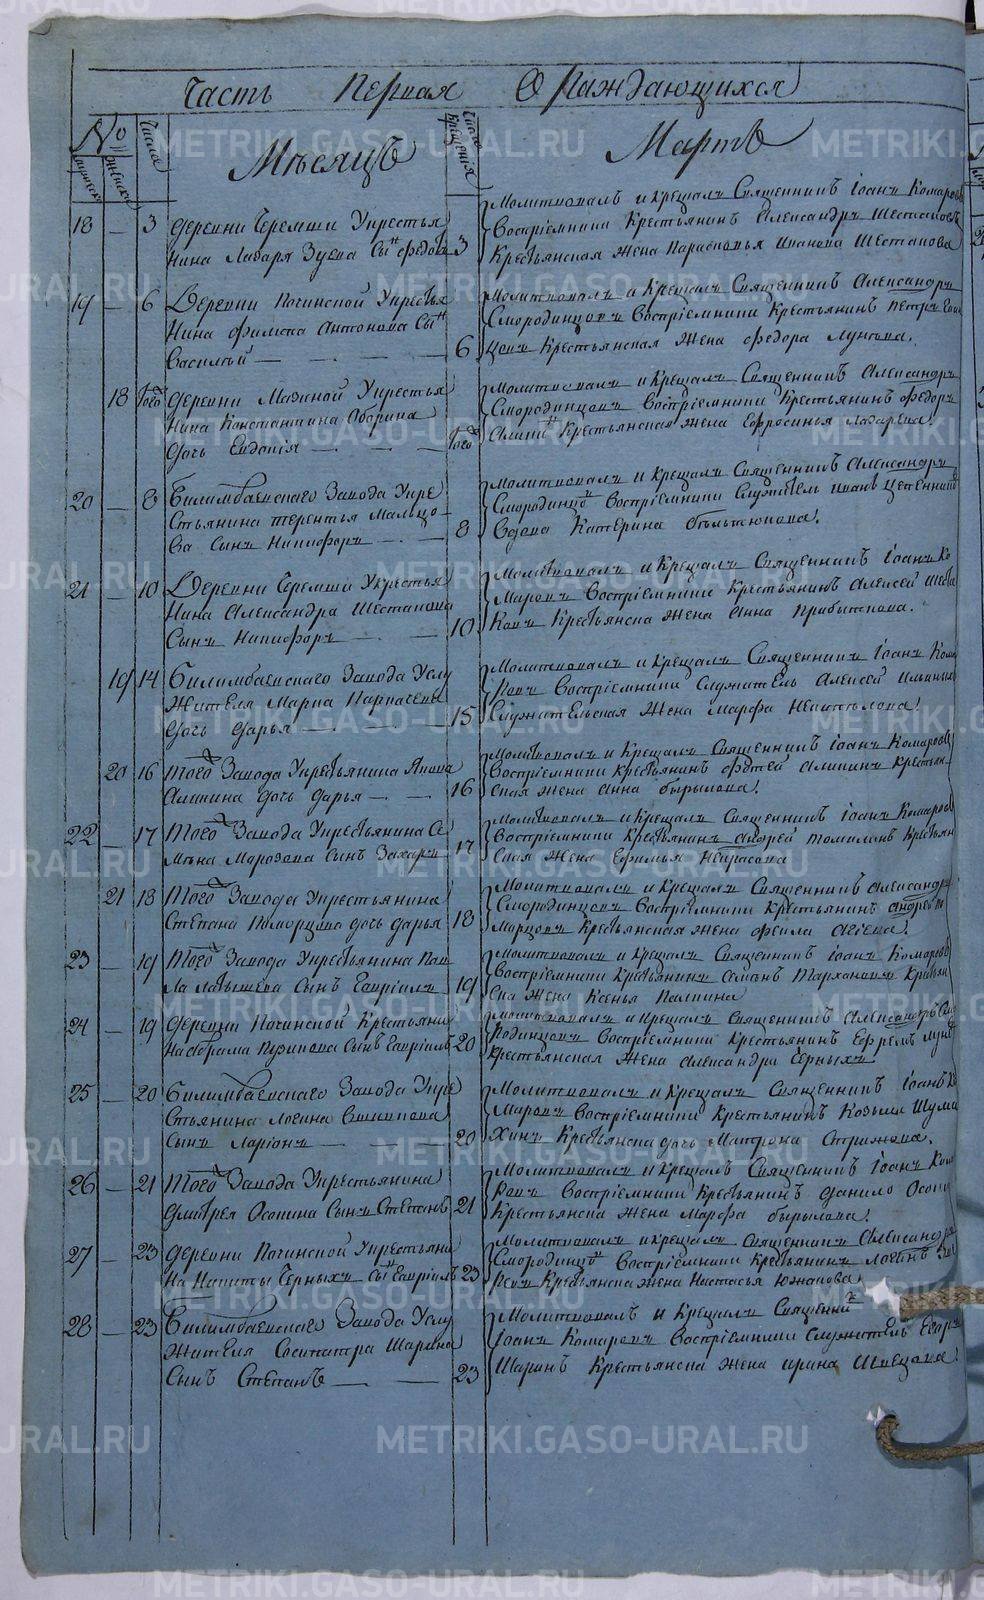 Часть Первая О Раждающихся
№
Числа
Мѣсяцъ
Числа Крещенія
Мартъ
18 — 3 деревни Черемши Укрестья
нина Лазаря Зуева Сынъ Федоръ 3
Молитвовалъ и Крещалъ Священникъ Іоанъ Комаровъ
Воспріемники Крестьянинъ Александръ Шестаковъ
Крестьянская Жена Парасковья Иванова Шестакова
19 — 6 Деревни Починской Укрестья
нина Антонова Сынъ
Василій — — — — 6
Молитвовалъ и Крещалъ Священникъ Александръ
Смородинцовъ Воспріемники Крестьянинъ Петръ
Крестьянская Жена Федора Лунгова.
18 Того деревни Мазиной Укрестья
нина Константина Оборина
дочь Евдокія — — — Того
Молитвовалъ и Крещалъ Священникъ Александръ
Смородинцовъ Воспріемники Крестьянинъ Федоръ
Крестьянская Жена Ефросинья Лазарева.
20 — 8 Билимбаевскаго Завода Укре
стьянина Терентья Мальцо-
ва Сынъ Никифоръ — — 8
Молитвовалъ и Крещалъ Священникъ Александръ
Смородинцовъ Воспріемники Служитель Иванъ
Вдова Катерина Бѣльтюкова.
21 — 10 Деревни Черемши Укрестья
нина Александра Шестакова
Сынъ Никифоръ — — 10
Молитвовалъ и Крещалъ Священникъ Іоанъ Ко
маровъ Воспріемники Крестьянинъ Алексей Шеста
ковъ Крестьянска Жена Анна Прибыткова.
19 14 Билимбаевскаго Завода Услу
жителя Марка
дочь Дарья — — 15
Молитвовалъ и Крещалъ Священникъ Іоанъ Кома
ровъ Воспріемники Служитель Алексей
Служительская Жена Марфа
20 16 Того Завода Укрестьянина Якова
Аликина дочь Дарья — — 16
Молитвовалъ и Крещалъ Священникъ Іоанъ Комаровъ
Воспріемники Крестьянинъ Аликинъ Крестьян-
ская Жена Анна Бырылова.
22 — 17 Того Завода Укрестьянина Се
мена Морозова Сынъ Захаръ 17
Молитвовалъ и Крещалъ Священникъ Іоанъ Комаровъ
Воспріемники Крестьянинъ Андрей Томиловъ Крестьян
ская Жена Ефимья Некрасова
21 18 Того Завода Укрестьянина
Степана Поморцова дочь Дарья 18
Молитвовалъ и Крещалъ Священникъ Александръ
Смородинцовъ Воспріемники Крестьянинъ Андрей По
морцовъ Крестьянская Жена Фекла
23 — 19 Того Завода Укрестьянина Пав
ла Латышева Сынъ Гавріилъ 19
Молитвовалъ и Крещалъ Священникъ Іоанъ Комаровъ
Воспріемники Крестьянинъ Семенъ Тархановъ Крестьян
ска Жена Ксенья Палкина
24 — 19 деревни Починской Крестьяни
на Абрама Пузикова Сынъ Гавріилъ 20
Молитвовалъ и Крещалъ Священникъ Александръ Смо
родинцовъ Воспріемники Крестьянинъ Ефремъ
Крестьянская Жена Александра Черныхъ
25 — 20 Билимбаевскаго Завода Укре
стьянина Логина
Сынъ Ларіонъ — — 20
Молитвовалъ и Крещалъ Священникъ Іоанъ Ко
маровъ Воспріемники Крестьянинъ Козьма Шума
хинъ Крестьянска дочь Матрона Стражова.
26 — 21 Того Завода Укрестьянина
Дмитрея Осокина Сынъ Стефанъ 21
Молитвовалъ и Крещалъ Священникъ Іоанъ Кома
ровъ Воспріемники Крестьянинъ Данило Осоки
Крестьянска Жена Марфа Бырылова.
27 — 23 деревни Починской Укрестьяни
на Никиты Черныхъ Сынъ Гавріилъ 23
Молитвовалъ и Крещалъ Священникъ Александръ
Смородинцовъ Воспріемники Крестьянинъ Логинъ
Крестьянска Жена Настасья Южакова
28 — 23 Билимбаевскаго Завода Услу
жителя Сосипатра Шарина
Сынъ Степанъ — — 23
Молитвовалъ и Крещалъ Священникъ
Іоанъ Комаровъ Воспріемники Служитель Егоръ
Шаринъ Крестьянска Жена Ирина Швецова.
METRIKI.GASO-URAL.RU